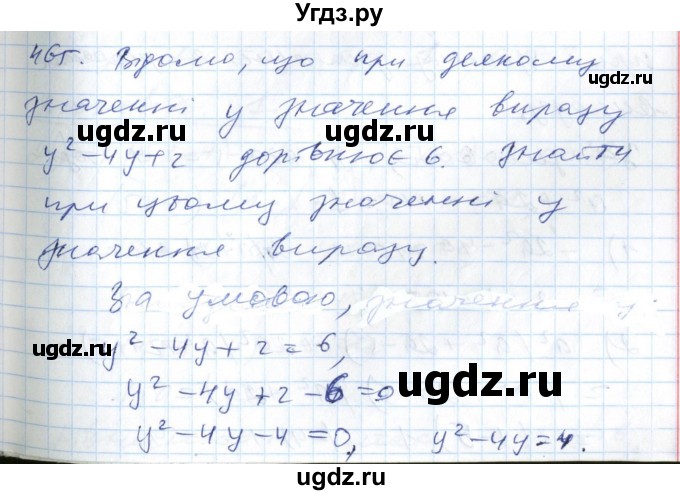 Угдз.ру
465. Відомо, що при деякому
значенні y значення виразу
y² - 4y + 2 дорівнює 6. Знайти
при цьому значенні y
значення виразу.
За умовою, значення y:
y² - 4y + 2 = 6,
y² - 4y + 2 - 6 = 0
y² - 4y - 4 = 0, y² - 4y = 4.
ugdz.ru
ugdz.ru
ugdz.ru
ugdz.ru
ugdz.ru
ugdz.ru
ugdz.ru